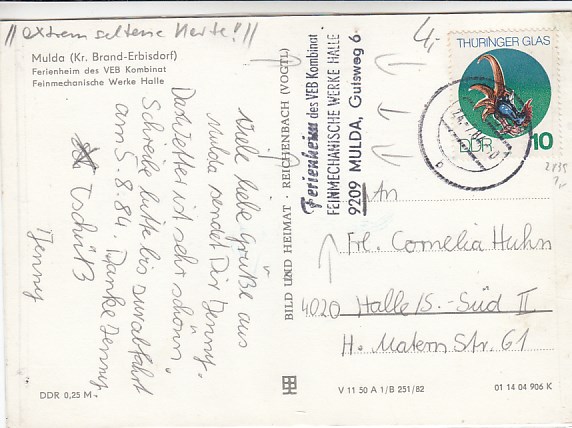 //extrem seltene Karte!//
Mulda (Kr. Brand-Erbisdorf)
Ferienheim des VEB Kombinat
Feinmechanische Werke Halle
Viele liebe Grüße aus
Mulda sendet Dir Jenny.
Das Wetter ist sehr schön.
Schreibe bitte bis zur abfahrt
am 5.8.84. Danke Jenny
Tschüß
Jenny
DDR 0,25 M
BILD UND HEIMAT · REICHENBACH (VOGTL)
Ferienheim des VEB Kombinat
FEINMECHANISCHE WERKE HALLE
9209 MULDA, Gutsweg 6
4,-
THÜRINGER GLAS
DDR 10
2835
An
Frl. Cornelia Huhn
4020 Halle/S.-Süd II
H. Matern Str. 61
V 11 50 A 1/B 251/82
01 14 04 906 K